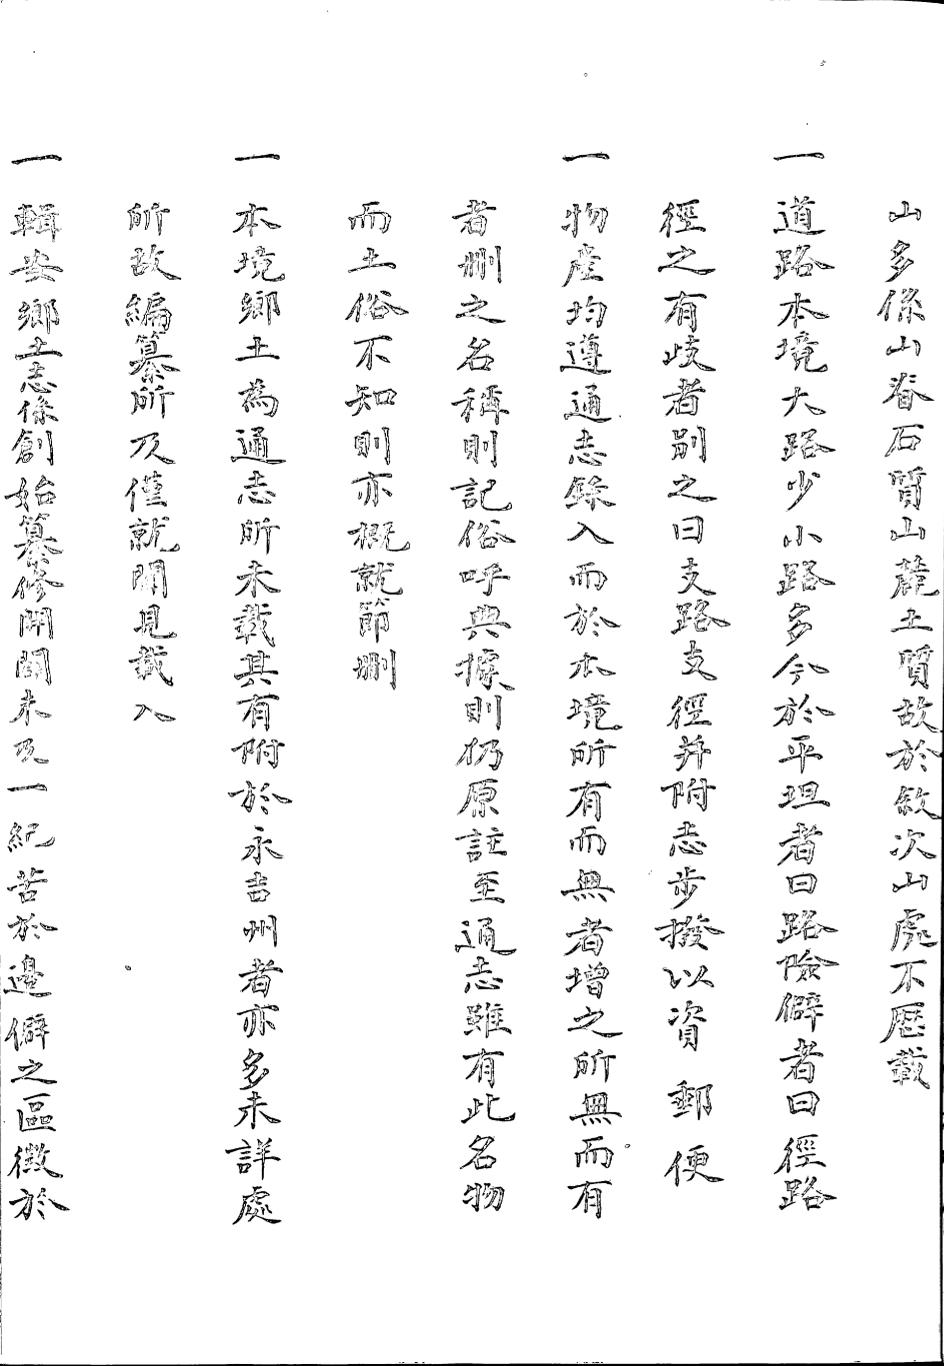 山多係山脊石質山麓土質故於敘次山處不歷載
一道路本境大路少小路多今於平坦者曰路險僻者曰徑路
徑之有歧者別之曰支路支徑并附志步撥以資郵便
一物產均遵通志錄入而於本境所有而無者增之所無而有
者刪之名稱則記俗呼典據則仍原註至通志雖有此名物
而土俗不知則亦概就節刪
一本境鄉土為通志所未載其有附於永吉州者亦多未詳處
所故編纂所及僅就聞見載入
一輯安鄉土志係創始纂修開闢未及一紀苦於邊僻之區徵於